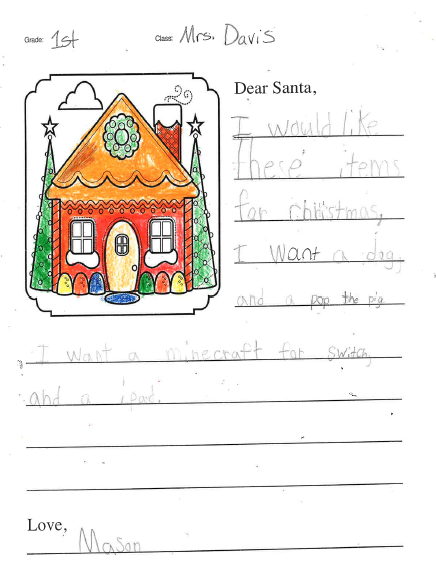 Grade: 1st
Class: Mrs. Davis
Dear Santa,
I would like
these items
for christmas,
I want a dog,
and a pop the pig
I want a minecraft for switch,
and a ipad.
Love,
Mason